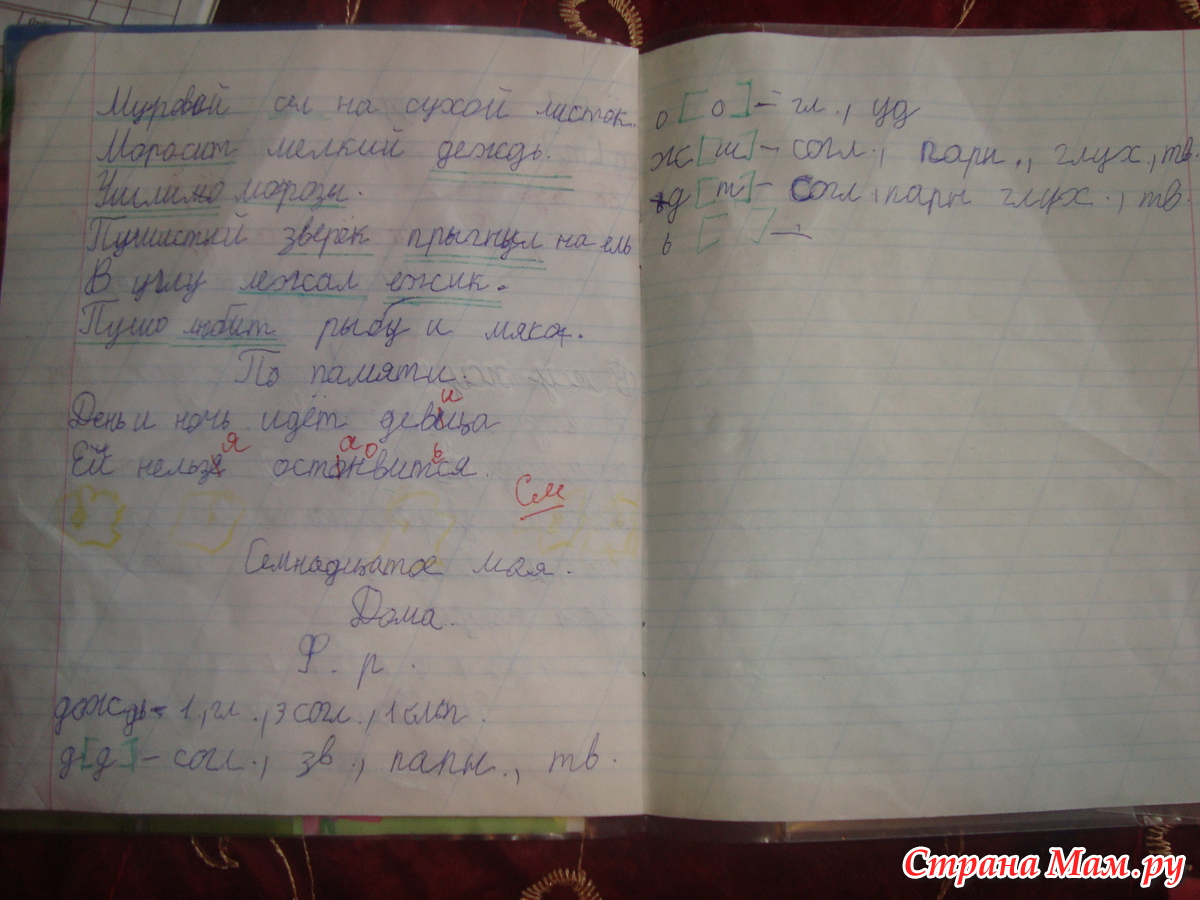 Муровой сел на сухой листок.
Моросит мелкий дежодь.
Ушли мо морозы.
Пушистый зверёк прыгнул на ель
В углу лежал ежик.
Пушо любит рыбу и мяко.
По памяти.
День и ночь идёт девица
и
Ей нельзя остонвится.
я а о ь
См
Семнадцатое мая.
Дома.
Ф. р.
дождь - 1, гл., 3 согл., 1 слог.
д [д] - согл., зв., парн., тв.
о [о] - гл., уд
ж [ш] - согл., парн., глух., тв.
д [т] - согл, парн глух., тв.
ь [ ] -
Страна Мам.ру